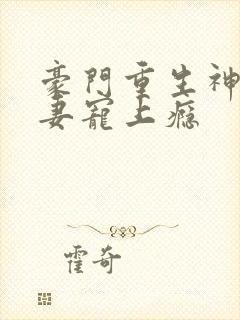 豪門重生神
妻寵上癮
霍奇